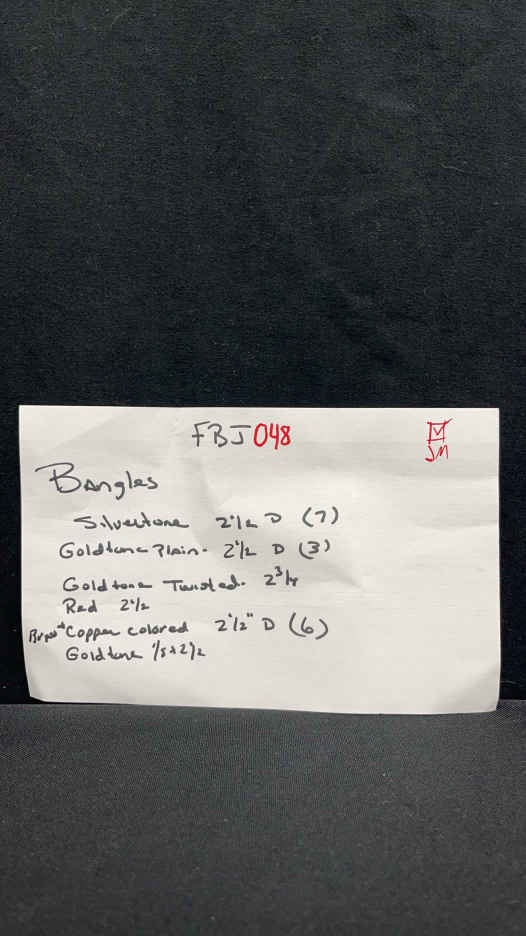 FBJ048
JM
Bangles
Silvertone 2 1/2 D (7)
Goldtone Plain. 2 1/2 D (3)
Goldtone Twisted. 2 3/4
Red 2 1/2
Copper colored 2 1/2" D (6)
Goldtone 1/5 x 2 1/2